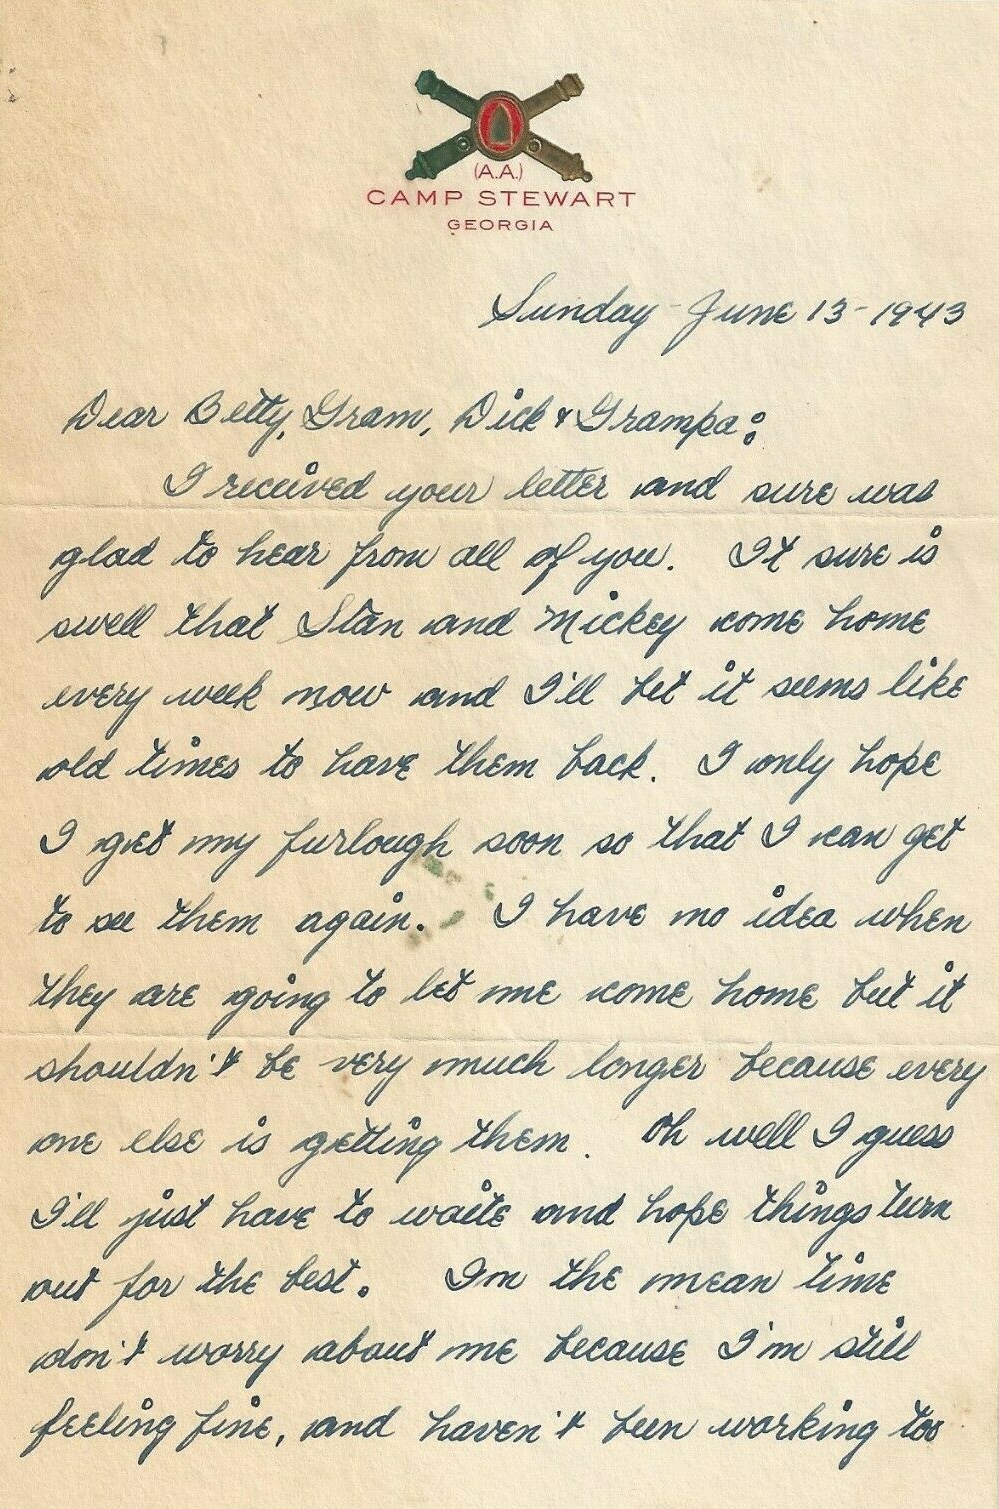 (A.A.)
CAMP STEWART
GEORGIA
Sunday - June 13 - 1943
Dear Betty, Gram, Dick & Grampa:
I received your letter and sure was
glad to hear from all of you. It sure is
swell that Stan and Mickey come home
every week now and I'll bet it seems like
old times to have them back. I only hope
I get my furlough soon so that I can get
to see them again. I have no idea when
they are going to let me come home but it
shouldn't be very much longer because every
one else is getting them. Oh well I guess
I'll just have to waite and hope things turn
out for the best. In the mean time
don't worry about me because I'm still
feeling fine, and haven't been working too